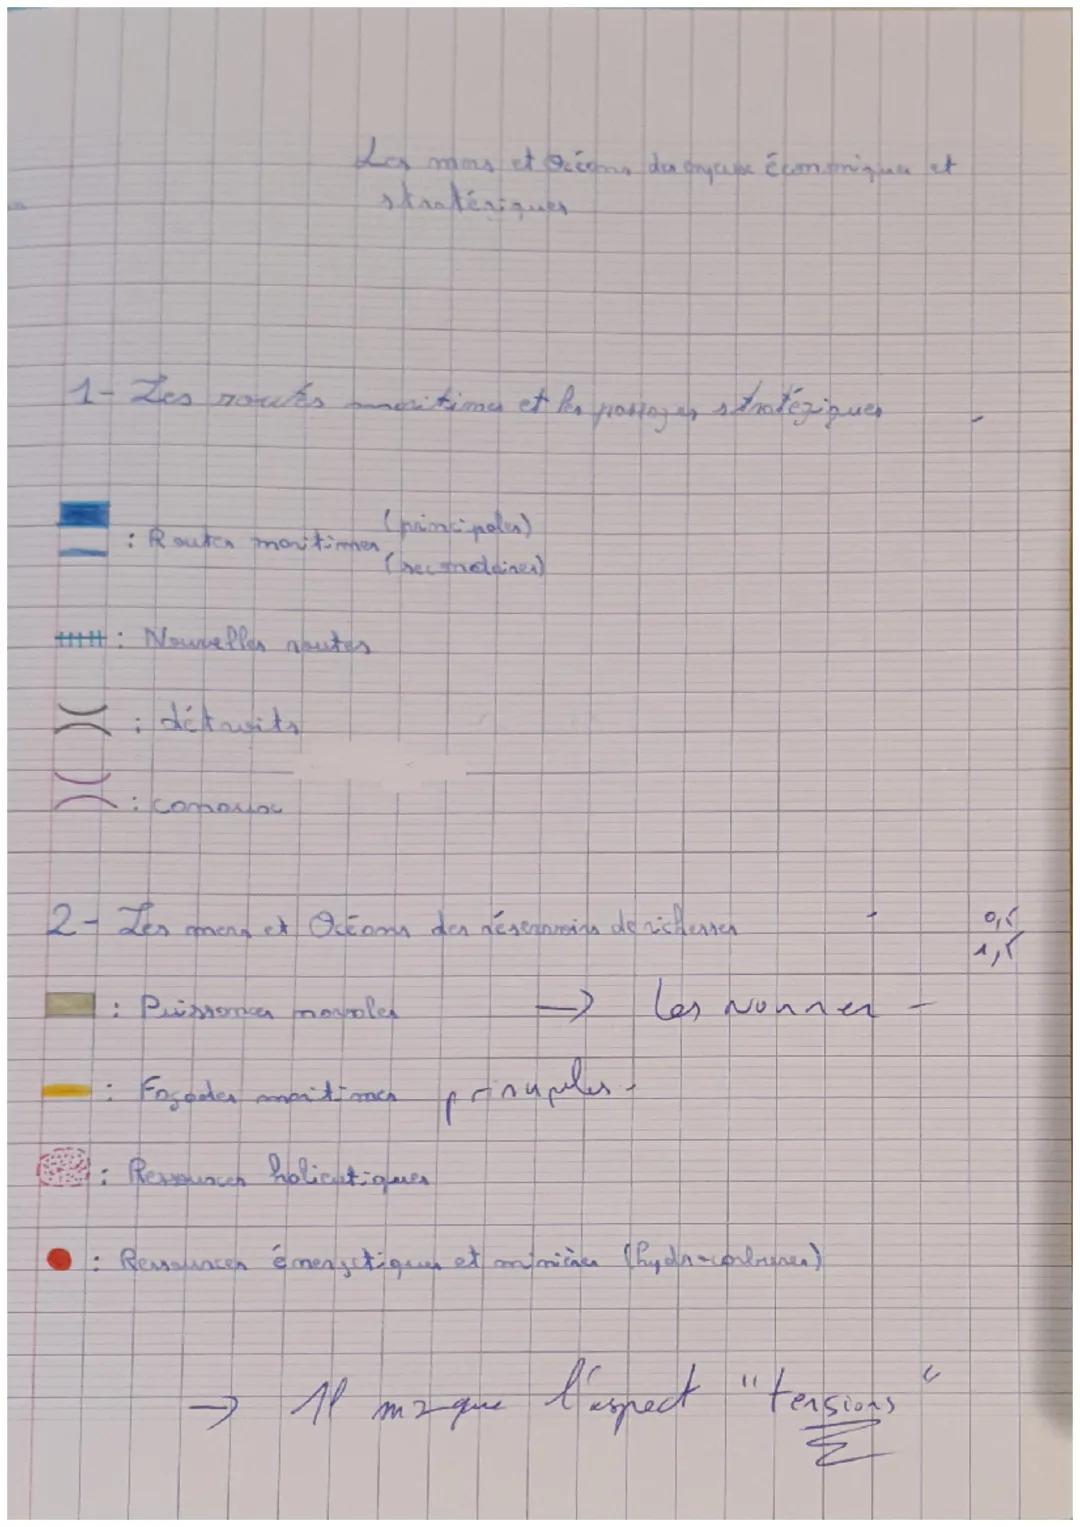 Les mers et Océans des enjeux économiques et
stratégiques
1- Les routes maritimes et les passages stratégiques
: Routes maritimes (principales)
(secondaires)
: Nouvelles routes
: détroits
: canaux
2- Les mers et Océans des réservoirs de richesses
0,5
1,5
: Puissances navales → les nommer -
: Façades maritimes principales -
: Ressources halieutiques
: Ressources énergétiques et minières (hydrocarbures)
→ Il manque l'aspect "tensions"